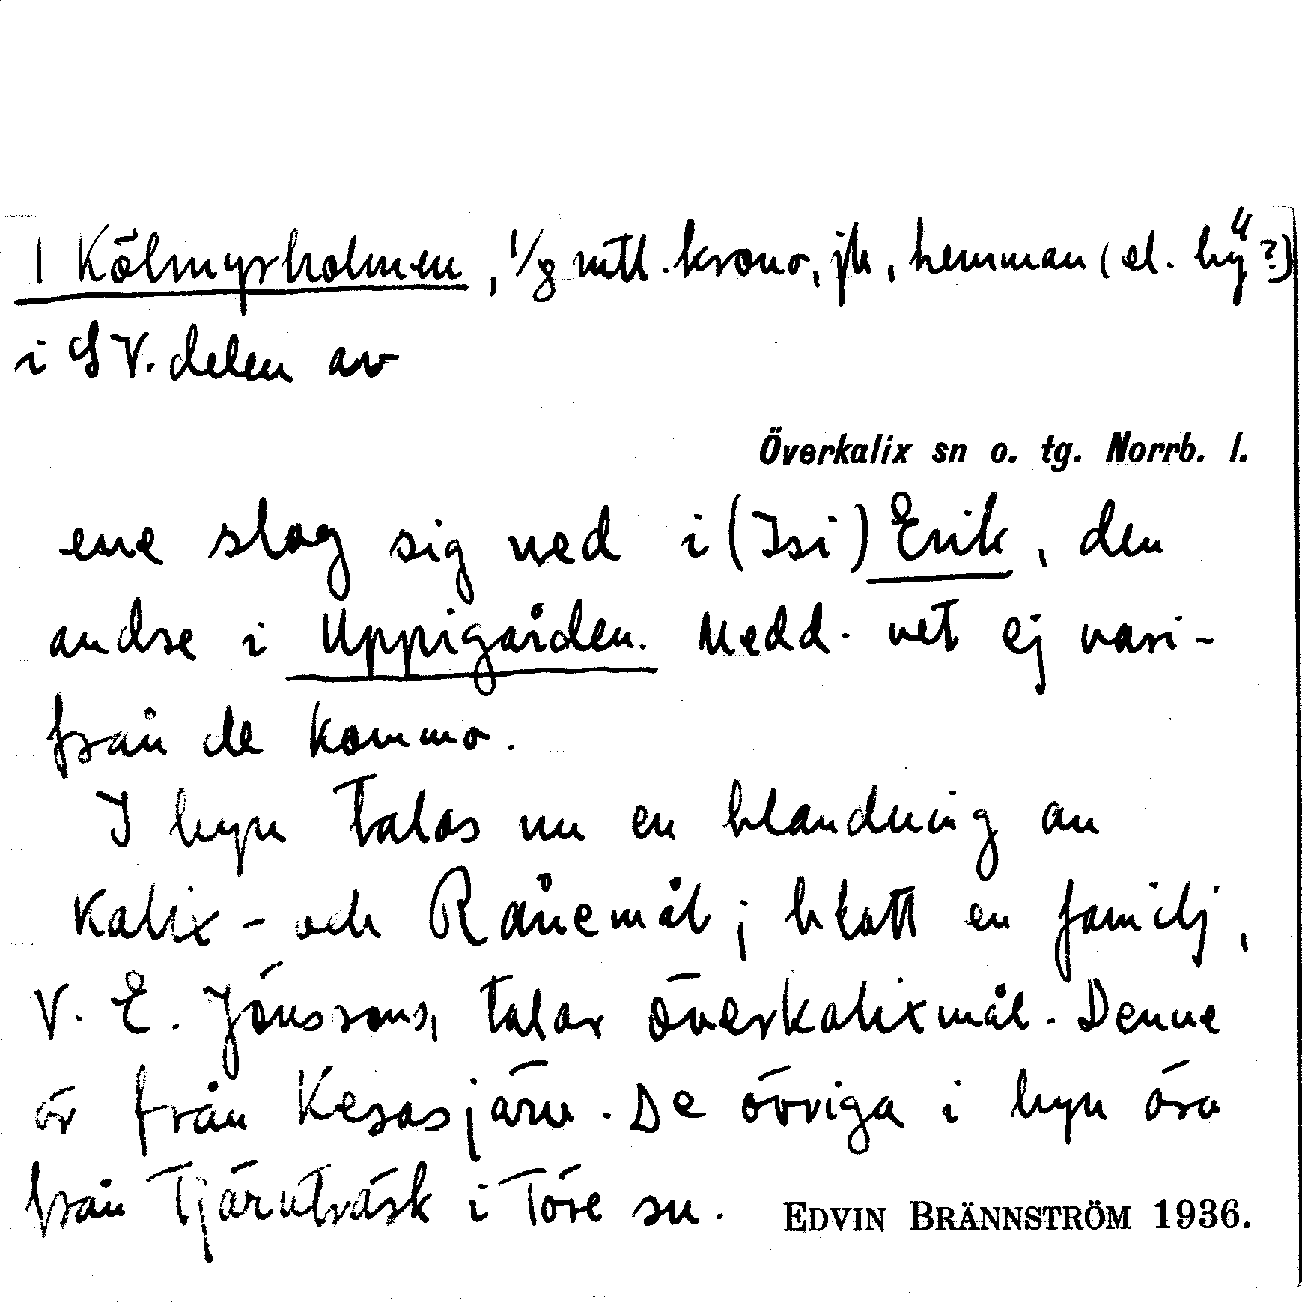 1 Kölmyrholmen, 1/8 mtl. krono, jb, hemman (el. by"?)
i SV. delen av
Överkalix sn o. tg. Norrb. l.
ene slog sig ned i (Isi) Erik, den
andre i Uppigården. Medd. vet ej vari-
från de kommo.
I byn talas nu en blandning av
Kalix- och Rånemål; blott en familj,
V. E. Jönssons, talar överkalixmål. Denne
är från Kesasjärv. De övriga i byn äro
från Tjärnträsk i Töre sn. EDVIN BRÄNNSTRÖM 1936.